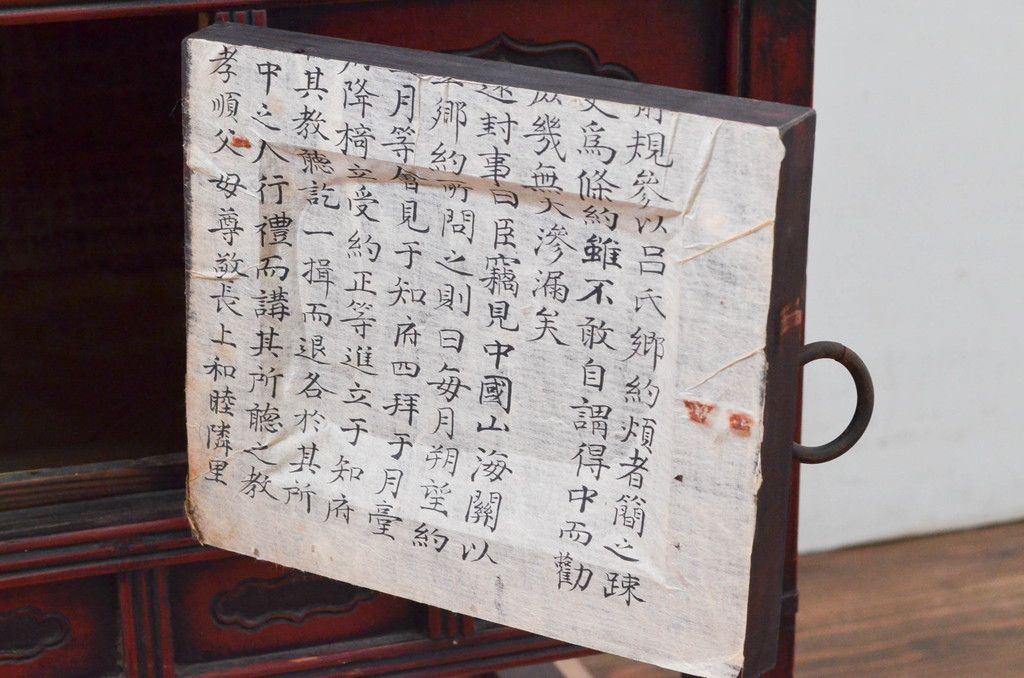 規參以呂氏鄉約煩者簡之踈
爲條約雖不敢自謂得中而勸
幾無大滲漏矣
封事曰臣竊見中國山海關以
鄉約所問之則曰每月朔望約
月等會見于知府四拜于月臺
降椅立受約正等進立于知府
其教聽訖一揖而退各於其所
中之人行禮而講其所聽之教
孝順父母尊敬長上和睦隣里